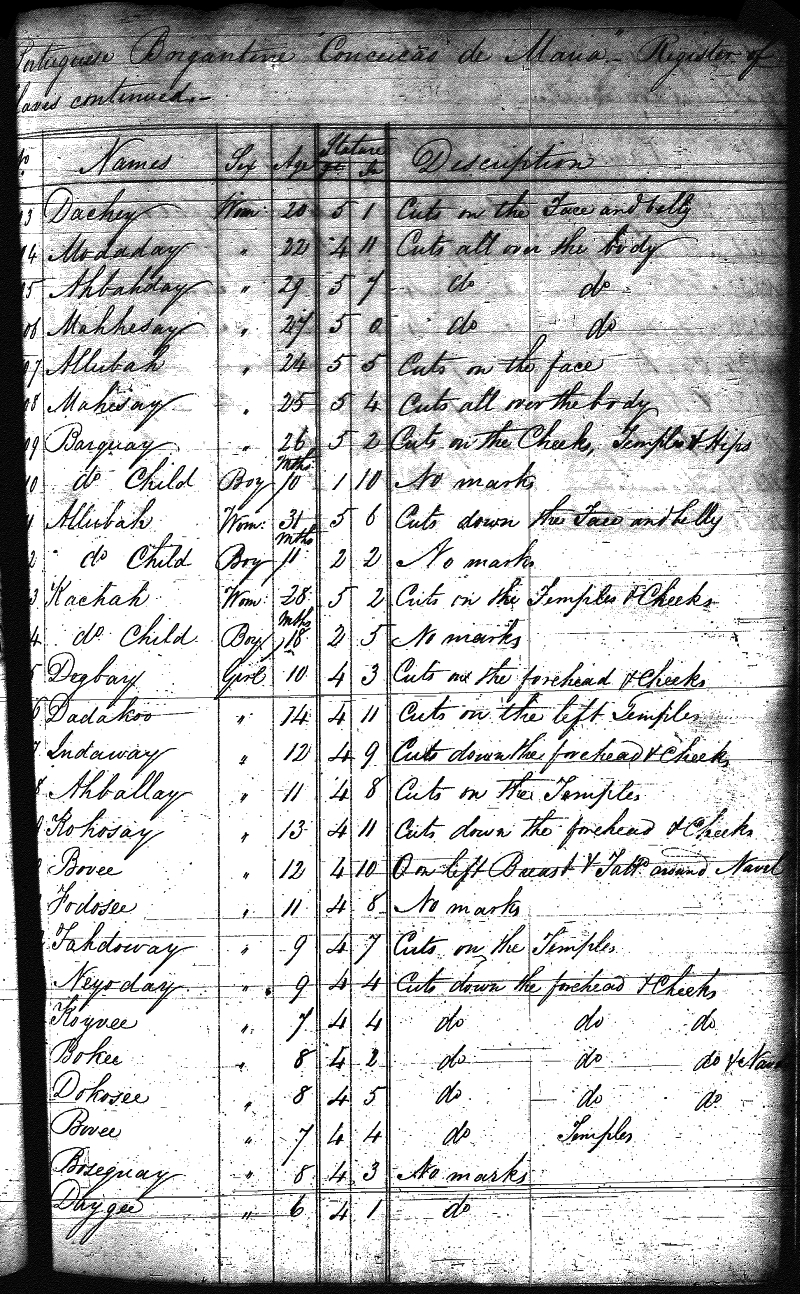 Portuguese Brigantine "Conceição de Maria" Register of
Slaves continued.-
No Names Sex Age Stature Ft In Description
03 Dachey Wom: 20 5 1 Cuts on the Face and belly
04 Modaday " 22 4 11 Cuts all over the body
05 Ahbahday " 29 5 7 do do
06 Mahhesay " 27 5 0 do do
07 Allubah " 24 5 5 Cuts on the face
08 Mahesay " 25 5 4 Cuts all over the body
09 Barquay " 26 5 2 Cuts on the Cheeks, Temples & Hips
10 do Child Boy mths 10 1 10 No marks
Allubah Wom: 31 5 6 Cuts down the Face and belly
2 do Child Boy mths 11 2 2 No marks
3 Kachah Wom: 28 5 2 Cuts on the Temples & Cheeks
4 do Child Boy mths 18 2 5 No marks
5 Degbay Girl 10 4 3 Cuts on the forehead & Cheeks
6 Dadakoo " 14 4 11 Cuts on the left Temples
7 Indaway " 12 4 9 Cuts down the forehead & Cheeks
8 Ahballay " 11 4 8 Cuts on the Temples
9 Kohosay " 13 4 11 Cuts down the forehead & Cheeks
Bovee " 12 4 10 O on left Breast & Tattd around Navel
Fodosee " 11 4 8 No marks
Tahdoway " 9 4 7 Cuts on the Temples
Neyoday " 9 4 4 Cuts down the forehead & Cheeks
Koyvee " 7 4 4 do do do
Bokee " 8 4 2 do do do &
Dohosee " 8 4 5 do do do
Bovee " 7 4 4 do Temples
Bosequay " 8 4 3 No marks
Daygee " 6 4 1 do